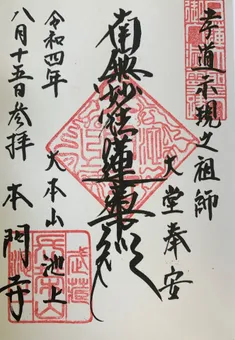 孝道示現之祖師
大堂奉安
南無妙法蓮華経
大本山 池上
本門寺
令和四年
八月十五日参拝